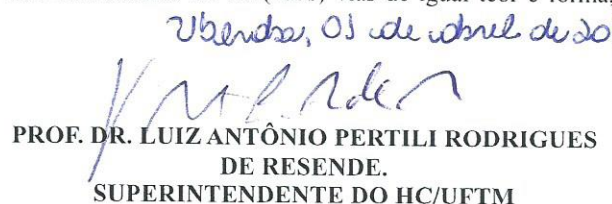 vias de igual teor e forma,
Uberaba, 01 de abril de 20
PROF. DR. LUIZ ANTÔNIO PERTILI RODRIGUES
DE RESENDE.
SUPERINTENDENTE DO HC/UFTM